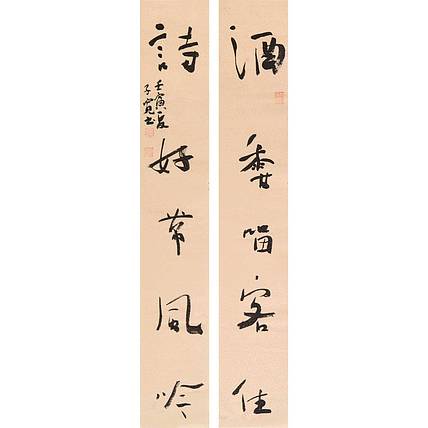 酒香留客住
詩好帶風吟
壬寅夏
子寬書